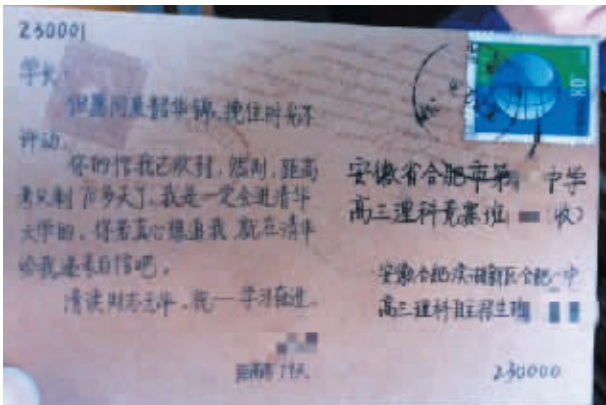 230001
学长:
但愿同展韶华锦,挽住时光不
许动。
你的信我已收到,然则,距高
考只剩70多天了,我是一定会进清华
大学的,你若真心想追我,就在清华
给我递来自信吧。
清读同志玉华,祝一学习奋进
距高考79天
安徽省合肥市第 中学
高三理科竞赛班 (收)
安徽合肥滨湖新区合肥一中
高三理科自主招生班
230000